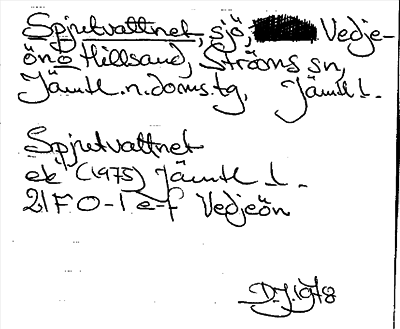 Spjutvattnet, sjö, Vedje-
ön o Hillsand, Ströms sn,
Jämtl. n. doms. tg, Jämtl l.
Spjutvattnet
ek (1975) Jämtl l.
21F 0-1 e-f Vedjeön
D.J. 1978